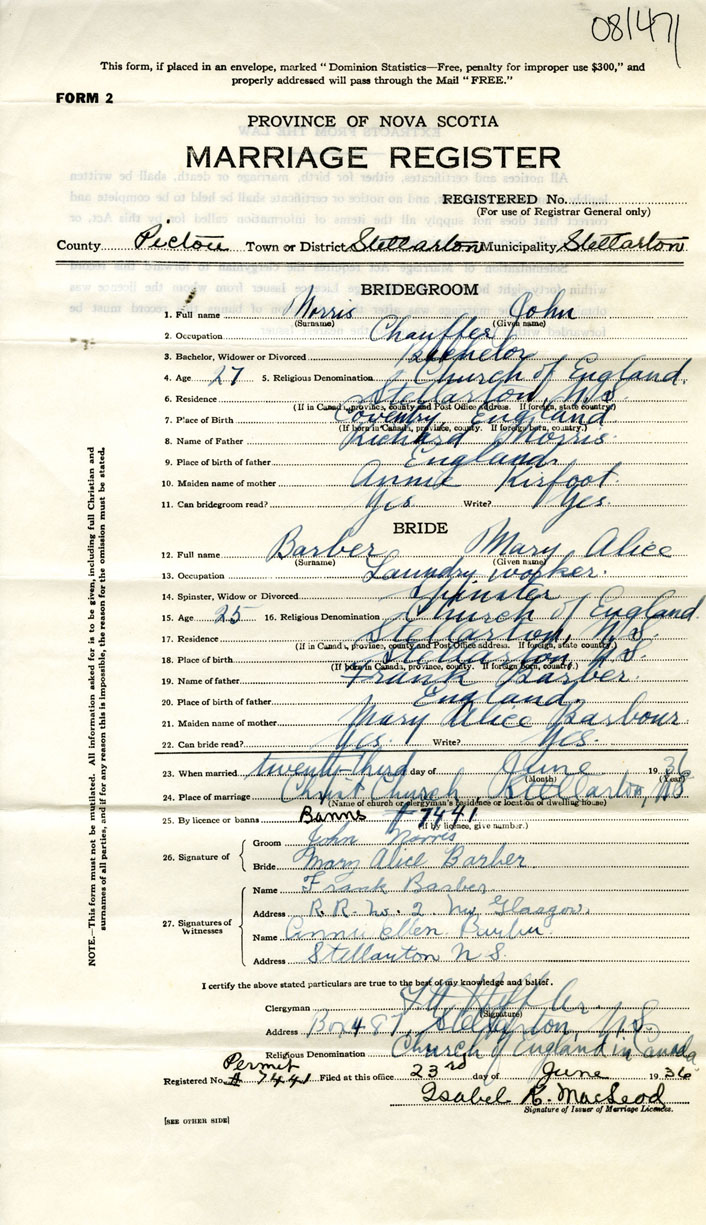 081471
This form, if placed in an envelope, marked "Dominion Statistics—Free, penalty for improper use $300," and
properly addressed will pass through the Mail "FREE."
FORM 2
PROVINCE OF NOVA SCOTIA
MARRIAGE REGISTER
REGISTERED No.
(For use of Registrar General only)
County Pictou Town or District Stellarton Municipality Stellarton
BRIDEGROOM
1. Full name Morris John
(Surname) (Given name)
2. Occupation Chauffer
3. Bachelor, Widower or Divorced Bachelor
4. Age 27 5. Religious Denomination Church of England
6. Residence Stellarton, N.S.
(If in Canada, province, county and Post Office address. If foreign, state country.)
7. Place of Birth Coventry England
(If born in Canada, province, county. If foreign born, country.)
8. Name of Father Richard Morris
9. Place of birth of father England.
10. Maiden name of mother Annie Kirfoot
11. Can bridegroom read? Yes Write? Yes.
BRIDE
12. Full name Barber Mary Alice
(Surname) (Given name)
13. Occupation Laundry worker.
14. Spinster, Widow or Divorced Spinster
15. Age 25 16. Religious Denomination Church of England
17. Residence Stellarton, N.S.
(If in Canada, province, county and Post Office address. If foreign, state country.)
18. Place of birth Stellarton N.S.
(If born in Canada, province, county. If foreign born, country.)
19. Name of father Frank Barber.
20. Place of birth of father England.
21. Maiden name of mother Mary Alice Barbour
22. Can bride read? Yes. Write? Yes.
23. When married twenty-third day of June 1936
(Month) (Year)
24. Place of marriage Christ Church Stellarton, NS
(Name of church or clergyman's residence or location of dwelling house)
25. By licence or banns Banns #7441
(If by licence, give number.)
26. Signature of
Groom John Morris
Bride Mary Alice Barber
27. Signatures of Witnesses
Name Frank Barber.
Address R.R. No. 2 New Glasgow.
Name Annie Ellen
Address Stellarton N.S.
I certify the above stated particulars are true to the best of my knowledge and belief.
Clergyman
(Signature)
Address Box 487, Stellarton, N.S.
Religious Denomination Church of England in Canada
Permit
Registered No. # 7441 Filed at this office 23rd day of June 1936
Isabel R. MacLeod
Signature of Issuer of Marriage Licences.
[SEE OTHER SIDE]
NOTE.—This form must not be mutilated. All information asked for is to be given, including full Christian and
surnames of all parties, and if for any reason this is impossible, the reason for the omission must be stated.